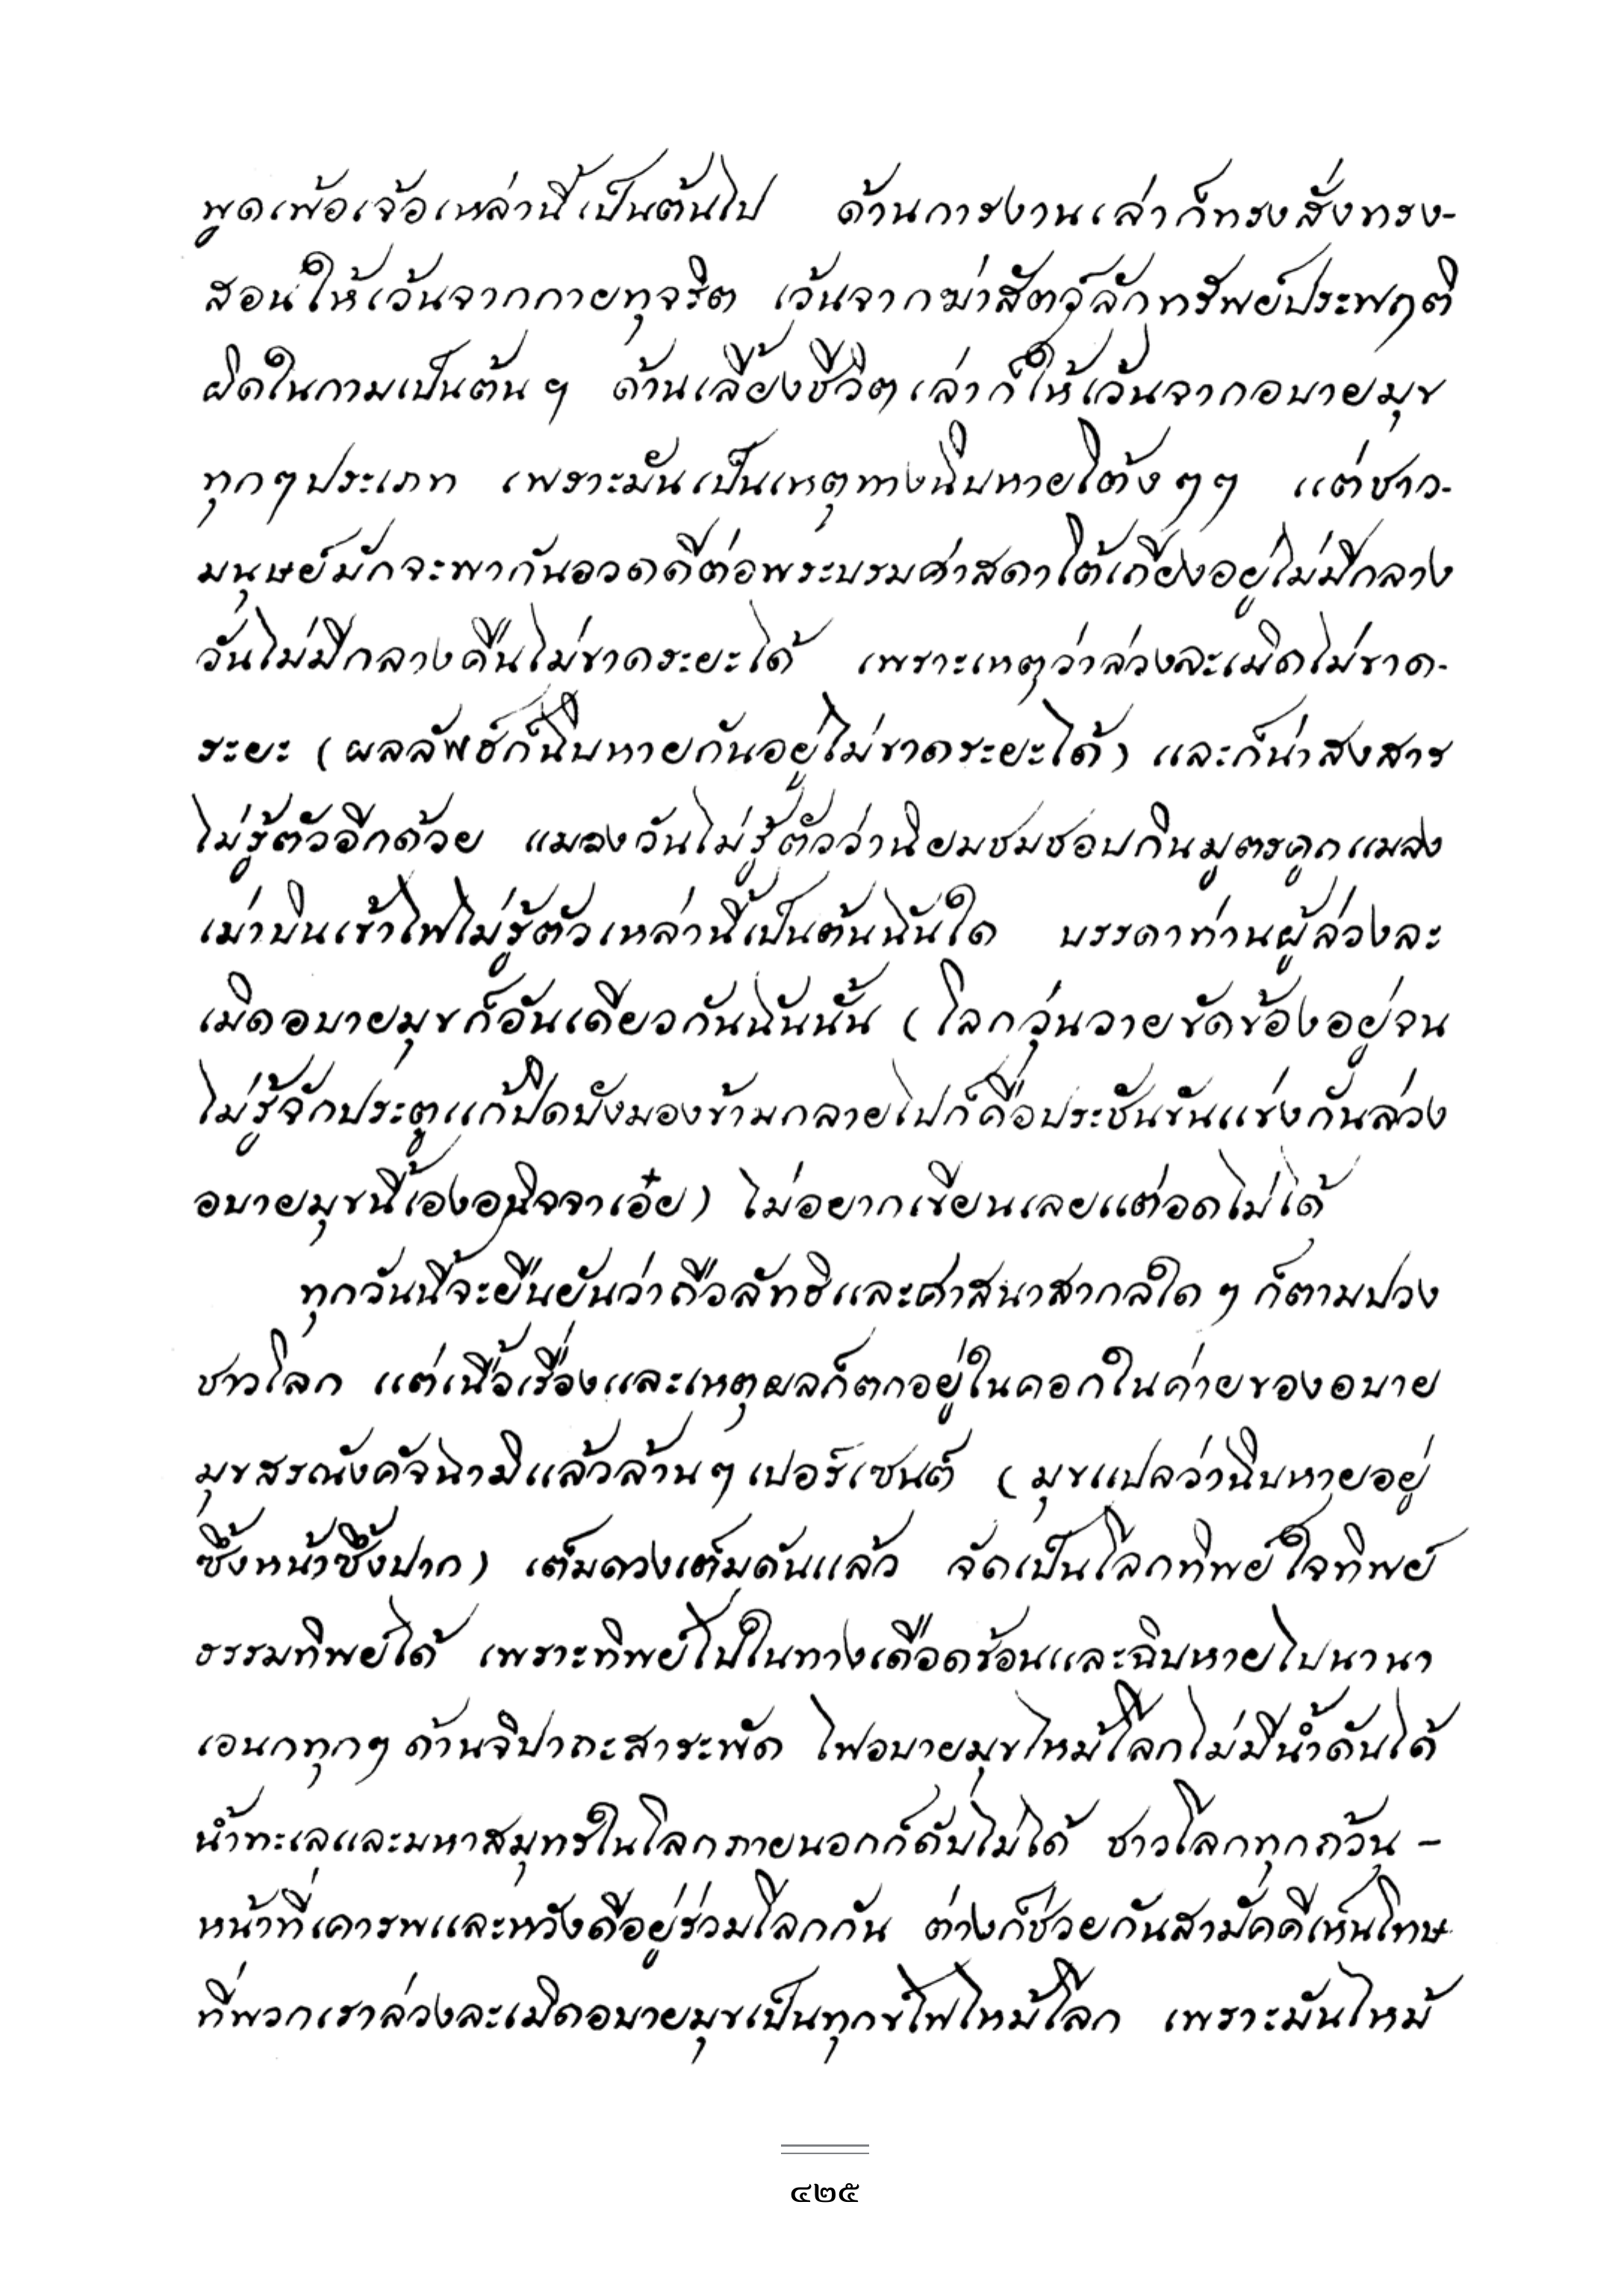 พูดเพ้อเจ้อเหล่านี้เป็นต้นไป ด้านการงานเล่าก็ทรงสั่งทรง-
สอนให้เว้นจากกายทุจริต เว้นจากฆ่าสัตว์ลักทรัพย์ประพฤติ
ผิดในกามเป็นต้น ฯ ด้านเลี้ยงชีวิตเล่าก็ให้เว้นจากอบายมุข
ทุกๆประเภท เพราะมันเป็นเหตุทางฉิบหายโต้งๆๆ แต่ชาว-
มนุษย์มักจะพากันอวดดีต่อพระบรมศาสดาโต้เถียงอยู่ไม่มีกลาง
วันไม่มีกลางคืนไม่ขาดระยะได้ เพราะเหตุว่าล่วงละเมิดไม่ขาด-
ระยะ (ผลลัพธ์ก็ฉิบหายกันอยู่ไม่ขาดระยะได้) และก็น่าสงสาร
ไม่รู้ตัวอีกด้วย แมลงวันไม่รู้ตัวว่านิยมชมชอบกินมูตรคูถแมลง
เม่าบินเข้าไฟไม่รู้ตัวเหล่านี้เป็นต้นฉันใด บรรดาท่านผู้ล่วงละ
เมิดอบายมุขก็อันเดียวกันฉันนั้น (โลกวุ่นวายขัดข้องอยู่จน
ไม่รู้จักประตูแก้ปิดบังมองข้ามกลายไปก็คือประชันขันแข่งกันล่วง
อบายมุขนี้เองอนิจจาเอ๋ย) ไม่อยากเขียนเลยแต่อดไม่ได้
ทุกวันนี้จะยืนยันว่าถือลัทธิและศาสนาสากลใด ๆ ก็ตามปวง
ชาวโลก แต่เนื้อเรื่องและเหตุผลก็ตกอยู่ในคอกในค่ายของอบาย
มุขสรณังคัจฉามิแล้วล้านๆเปอร์เซนต์ (มุขแปลว่าฉิบหายอยู่
ซึ้งหน้าซึ้งปาก) เต็มดวงเต็มดันแล้ว จัดเป็นโลกทิพย์ใจทิพย์
ธรรมทิพย์ได้ เพราะทิพย์ไปในทางเดือดร้อนและฉิบหายไปนานา
เอนกทุกๆด้านจิปาถะสาระพัด ไฟอบายมุขไหม้โลกไม่มีน้ำดับได้
น้ำทะเลและมหาสมุทรในโลกภายนอกก็ดับไม่ได้ ชาวโลกทุกถ้วน -
หน้าที่เคารพและหวังดีอยู่ร่วมโลกกัน ต่างก็ช่วยกันสามัคคีเห็นโทษ
ที่พวกเราล่วงละเมิดอบายมุขเป็นทุกข์ไฟไหม้โลก เพราะมันไหม้
๔๒๕